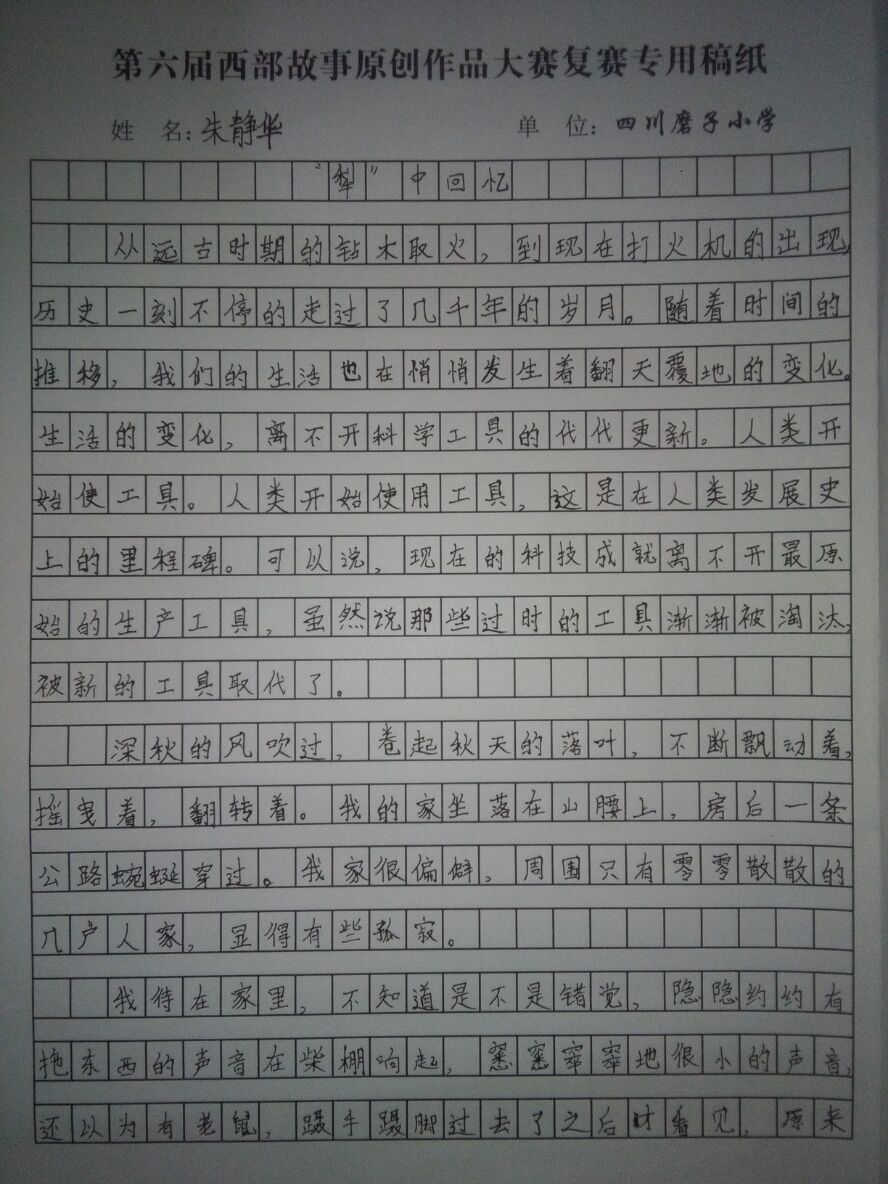 第六届西部故事原创作品大赛复赛专用稿纸
姓 名：朱静华 单 位：四川磨子小学
“犁”中回忆
从远古时期的钻木取火，到现在打火机的出现，
历史一刻不停的走过了几千年的岁月。随着时间的
推移，我们的生活也在悄悄发生着翻天覆地的变化。
生活的变化，离不开科学工具的代代更新。人类开
始使工具。人类开始使用工具，这是在人类发展史
上的里程碑。可以说，现在的科技成就离不开最原
始的生产工具，虽然说那些过时的工具渐渐被淘汰，
被新的工具取代了。
深秋的风吹过，卷起秋天的落叶，不断飘动着，
摇曳着，翻转着。我的家坐落在山腰上，房后一条
公路蜿蜒穿过。我家很偏僻，周围只有零零散散的
几户人家，显得有些孤寂。
我待在家里，不知道是不是错觉，隐隐约约有
拖东西的声音在柴棚响起，窸窸窣窣地很小的声音，
还以为有老鼠，蹑手蹑脚过去了之后才看见，原来